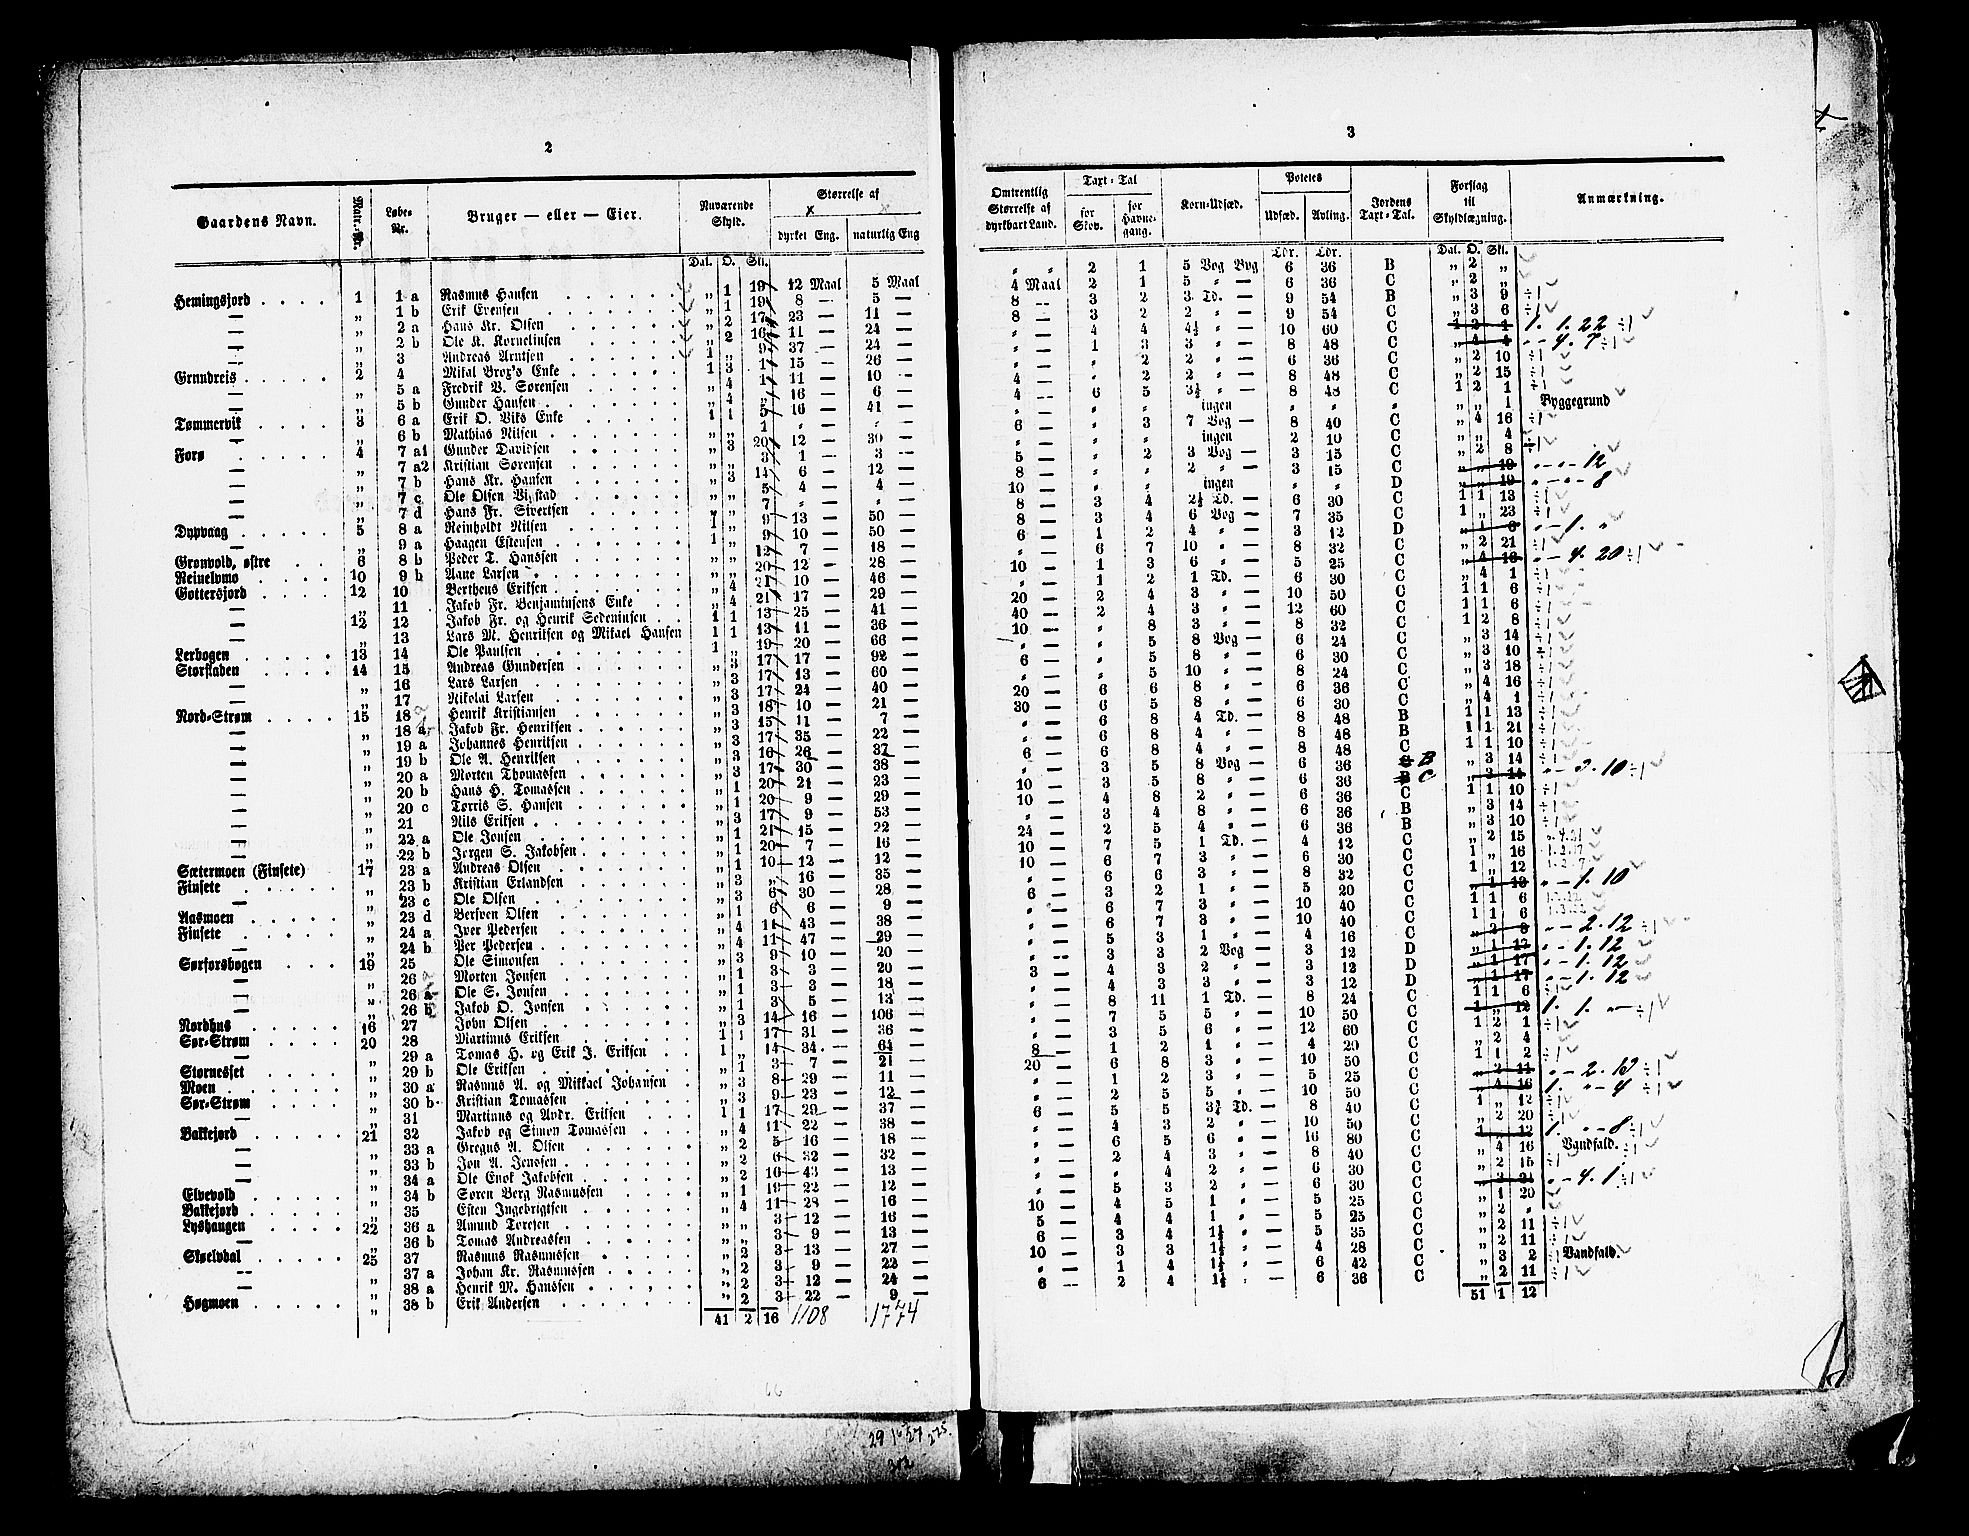 2
Gaardens Navn. Matr.-Nr. Løbe-Nr. Bruger — eller — Eier. Nuværende Skyld. Størrelse af
dyrket Eng. naturlig Eng
Dal. O. Skl.
Hemingsjord . . . . 1 1 a Rasmus Hansen „ 1 19 12 Maal 5 Maal
— „ 1 b Erik Evensen „ 1 19 8 — 5 —
— „ 2 a Hans Kr. Olsen „ 2 17 23 — 11 —
— „ 2 b Ole K. Kornelinsen „ 2 16 11 — 24 —
— „ 3 Andreas Arntsen 1 „ 9 37 — 24 —
Grundreis . . . . 2 4 Mikal Brox's Enke 1 3 1 15 — 26 —
— „ 5 a Fredrik B. Sørensen „ 4 1 11 — 10 —
— „ 5 b Gunder Hansen „ 4 „ 16 — 6 —
Tømmervik . . . . 3 6 a Erik O. Viks Enke 1 1 5 16 — 41 —
— „ 6 b Mathias Nilsen „ „ 1 „ „
Forø . . . . 4 7 a1 Gunder Davidsen „ 3 20 12 — 30 —
— „ 7 a2 Kristian Sørensen „ „ 3 1 — 3 —
— „ 7 b Hans Kr. Hansen „ 3 14 6 — 12 —
— „ 7 c Ole Olsen Vigstad „ „ 5 4 — 4 —
— „ 7 d Hans Fr. Sivertsen „ „ 7 „ „
Dypvaag . . . . 5 8 a Reinholdt Nilsen 1 „ 9 13 — 50 —
— „ 9 a Haagen Estensen 1 „ 9 10 — 50 —
Grønvold, østre . . 6 8 b Peder T. Hanssen „ „ 12 7 — 18 —
Reinelvmo . . . . 10 9 b Aane Larsen „ „ 20 12 — 28 —
Gottersjord . . . . 12 10 Berthens Eriksen „ 4 21 10 — 46 —
— „ 11 Jakob Fr. Benjaminsens Enke „ 4 21 17 — 29 —
— 12 12 Jakob Fr. og Henrik Sedeninsen 1 1 13 25 — 41 —
— „ 13 Lars M. Henriksen og Mikael Hansen 1 1 13 11 — 36 —
Lerbogen . . . . 13 14 Ole Paulsen 1 „ 19 20 — 66 —
Storsladen . . . . 14 15 Andreas Gundersen „ 3 17 17 — 92 —
— „ 16 Lars Larsen „ 3 17 13 — 60 —
— „ 17 Nikolai Larsen „ 3 17 24 — 40 —
Nord-Strøm . . . . 15 18 Henrik Kristiansen „ 3 18 10 — 21 —
— „ 18 a Jakob Fr. Henriksen „ 3 15 11 — 7 —
— „ 19 a Johannes Henriksen „ 3 17 35 — 22 —
— „ 19 b Ole A. Henriksen „ 3 16 26 — 37 —
— „ 20 a Morten Thomassen „ 3 17 30 — 38 —
— „ 20 b Hans H. Tomassen „ 1 20 21 — 23 —
— „ 20 c Torris S. Hansen „ 1 20 9 — 29 —
— „ 21 Nils Eriksen „ 3 17 9 — 53 —
— „ 22 a Ole Jonsen „ 1 21 15 — 22 —
— „ 22 b Jørgen S. Jakobsen „ 1 20 7 — 16 —
Sætermoen (Finsete) 17 23 a Andreas Olsen „ 1 10 12 — 12 —
Finsete . . . . „ 23 b Kristian Erlandsen „ 3 „ 16 — 35 —
— „ 23 c Ole Olsen „ 3 6 30 — 28 —
Aasmoen . . . . „ 23 d Bersven Olsen „ 1 6 6 — 9 —
Finsete . . . . „ 24 a Iver Pedersen „ 4 11 43 — 38 —
— „ 24 b Per Pedersen „ 4 11 47 — 29 —
Sørforsbogen . . . 19 25 Ole Simonsen „ 3 9 10 — 20 —
— „ 26 Morten Jonsen „ 1 3 3 — 20 —
— „ 26 a Ole S. Jonsen „ 1 3 3 — 18 —
— „ 26 b Jakob O. Jonsen „ 1 3 5 — 13 —
Nordhus . . . . 16 27 John Olsen „ 3 14 16 — 106 —
Sør-Strøm . . . . 20 28 Martinus Eriksen 1 1 17 31 — 36 —
— „ 29 a Tomas H. og Erik J. Eriksen 1 „ 14 34 — 64 —
Størneset . . . . „ 29 b Ole Eriksen „ 1 3 7 — 21 —
Moen . . . . „ 30 a Rasmus A. og Mikkael Johansen „ 3 8 29 — 11 —
Sør-Strøm . . . . „ 30 b Kristian Tomassen „ 3 9 23 — 12 —
— „ 31 Martinus og Andr. Eriksen 1 1 17 29 — 37 —
Bakkejord . . . . 21 32 Jakob og Simon Tomassen „ 4 11 22 — 38 —
— „ 33 a Gregus A. Olsen „ 2 5 16 — 18 —
— „ 33 b Jon A. Jensen „ 2 6 32 — 32 —
— „ 34 a Ole Enok Jakobsen „ 2 16 43 — 13 —
Elvevold . . . . „ 34 b Søren Berg Rasmussen „ 1 19 22 — 12 —
Bakkejord . . . . „ 35 Esten Ingebrigtsen „ 4 11 28 — 16 —
Lyshaugen . . . . 22 36 a Amund Toresen „ „ 3 12 — 16 —
— „ 36 b Tomas Andreassen „ „ 3 9 — 13 —
Skøelvdal . . . . 25 37 Rasmus Rasmussen „ 2 3 13 — 27 —
— „ 37 a Johan Kr. Rasmussen „ 2 3 9 — 22 —
— „ 38 a Henrik M. Hanssen „ 2 3 12 — 24 —
Høgmoen . . . . „ 38 b Erik Andersen „ 2 3 22 — 9 —
41 2 16 1108 1774
29 1 27 275.
312
3
Omtrentlig Størrelse af dyrkbart Land. Taxt-Tal Korn-Udsæd. Potetes Jordens Taxt-Tal. Forslag til Skyldlægning. Anmærkning.
for Skov. for Havnegang. Udsæd. Avling.
Tdr. Tdr. Dal. O. Skl.
„ „ 2 1 5 Vog Byg 6 36 B „ 2 „
4 Maal 2 1 5 „ — 6 36 C „ 2 „
8 — 3 2 3 Td. — 9 54 B „ 3 9 ÷1
8 — 3 2 2 „ — 9 54 C „ 3 6
„ 4 4 4½ „ — 10 60 C 1 2 1 1. 1. 22 ÷1
„ 1 3 3 „ — 8 48 C „ 4 4 „ 4. 7 ÷1
„ „ 2 2 „ — 6 36 C „ 2 10 ÷1
4 — „ 2 2 „ — 8 48 C „ 2 15
4 — 6 5 3½ „ — 8 48 C 1 2 1 ÷1
„ „ „ ingen „ „ „ „ „ 1 Byggegrund
6 — „ 3 7 Vog — 8 40 C „ 4 16 ÷1
„ „ „ ingen 2 10 C „ „ 4
5 — „ 2 3 Vog — 3 15 C „ 2 8 ÷1
8 — „ „ 2 „ — 3 15 C „ „ 19 „ „ 12
10 — „ „ ingen „ „ D „ „ 19 „ „ 8
8 — 3 4 2½ Td. — 6 30 C 1 1 13 ÷1
8 — 3 4 6 Vog — 7 35 C 1 „ 23 ÷1
6 — 1 2 4 „ — 3 12 D „ 1 6 „ 1. „
„ 6 7 10 „ — 8 32 C „ 2 21 ÷1
10 — 1 3 6 „ — 5 25 C „ 4 18 „ 4. 20 ÷1
„ 1 2 1 Td. — 6 30 C „ 4 1 ÷1
20 — 2 4 3 „ — 10 50 C 1 1 6 ÷1
40 — 2 4 3 „ — 12 60 C 1 1 6 ÷1
10 — „ 8 3 „ — 8 32 C 1 2 8 ÷1
„ „ 5 8 Vog — 6 24 C „ 3 14 ÷1
6 — „ 5 8 „ — 6 30 C „ 3 10 ÷1
„ „ 5 10 „ — 8 24 C „ 3 18 ÷1
20 — 6 6 8 „ — 6 36 C „ 4 16 ÷1
30 — 6 5 8 „ — 6 30 C „ 4 1 ÷1
„ 6 8 4 Td. — 8 48 B 1 1 13 ÷1
„ 6 8 4 „ — 8 48 B 1 1 21 ÷1
6 — 6 8 4 „ — 8 48 C 1 1 10 ÷1
„ 3 5 8 Vog — 6 36 C B „ 3 14 ÷1
10 — 3 5 8 „ — 6 36 B C „ 3 14 „ 3. 10 ÷1
10 — 4 8 2 „ — 6 36 C 1 1 10 ÷1
„ 3 4 8 „ — 6 36 B „ 3 14 ÷1
24 — 2 5 4 „ — 6 36 B „ 3 10 ÷1
10 — 7 5 1 Td. — 4 12 C „ 2 15
10 — 6 7 3 „ — 6 30 C 1 „ 16
„ 6 6 3 „ — 8 32 C 1 „ 12
6 — 3 2 1 „ — 5 20 C „ 1 13 „ 1. 10
„ 6 7 3 „ — 10 40 C 1 1 6
„ 6 7 3 „ — 10 40 C 1 1 6
„ 5 3 1 „ — 4 16 C „ 2 8 „ 2. 12 ÷1
„ 4 3 2 Vog — 3 12 D „ 1 17 „ 1. 12
3 — 4 3 2 „ — 3 12 D „ 1 17 „ 1. 12
„ 4 3 3 „ — 3 12 D „ 1 17 „ 1. 12
„ 8 11 1 Td. — 8 24 C 1 1 6 ÷1
„ 7 5 5 „ — 10 50 C 1 „ 12 1. 1. „ ÷1
„ 3 5 6 „ — 12 60 C 1 2 1 ÷1
8 — 1 2 1 „ — 4 20 C „ 2 4
20 — 6 8 3 „ — 10 50 C 1 1 2 ÷1
„ 1 2 3 „ — 5 25 C „ 2 11 „ 2. 13 ÷1
„ 2 5 5 „ — 10 50 C „ 4 16 1. „ 4 ÷1
6 — 5 5 3¾ Td. — 8 40 C 1 „ 12
„ 4 3 2 „ — 10 50 C „ 2 20 ÷1
„ 6 5 6 „ — 16 80 C 1 „ 12 1. „ 8 ÷1
„ 2 4 3 „ — 8 40 C „ 4 16 Vandfald.
„ „ 4 2 „ — 6 30 C „ 2 15 ÷1
„ 5 3 2 „ — 6 30 C „ 3 21 „ 4. 1 ÷1
10 — 4 5 1 „ — 5 25 C „ 1 20
5 — 4 4 1 „ — 5 25 C „ 2 „
6 — 3 4 1½ „ — 5 35 C „ 2 11 ÷1
10 — 3 3 1½ „ — 4 28 C „ 2 11 ÷1
„ 1 4 1½ „ — 6 42 C „ 3 2 Vandfald.
6 — 2 4 1½ „ — 6 36 C „ 2 11 ÷1
51 1 12